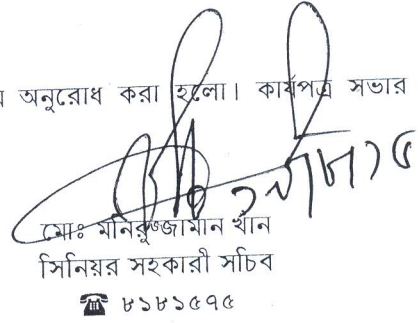 অনুরোধ করা হলো। কার্যপত্র সভার
মোঃ মনিরুজ্জামান খান
সিনিয়র সহকারী সচিব
☎ ৮১৮১৫৭৫